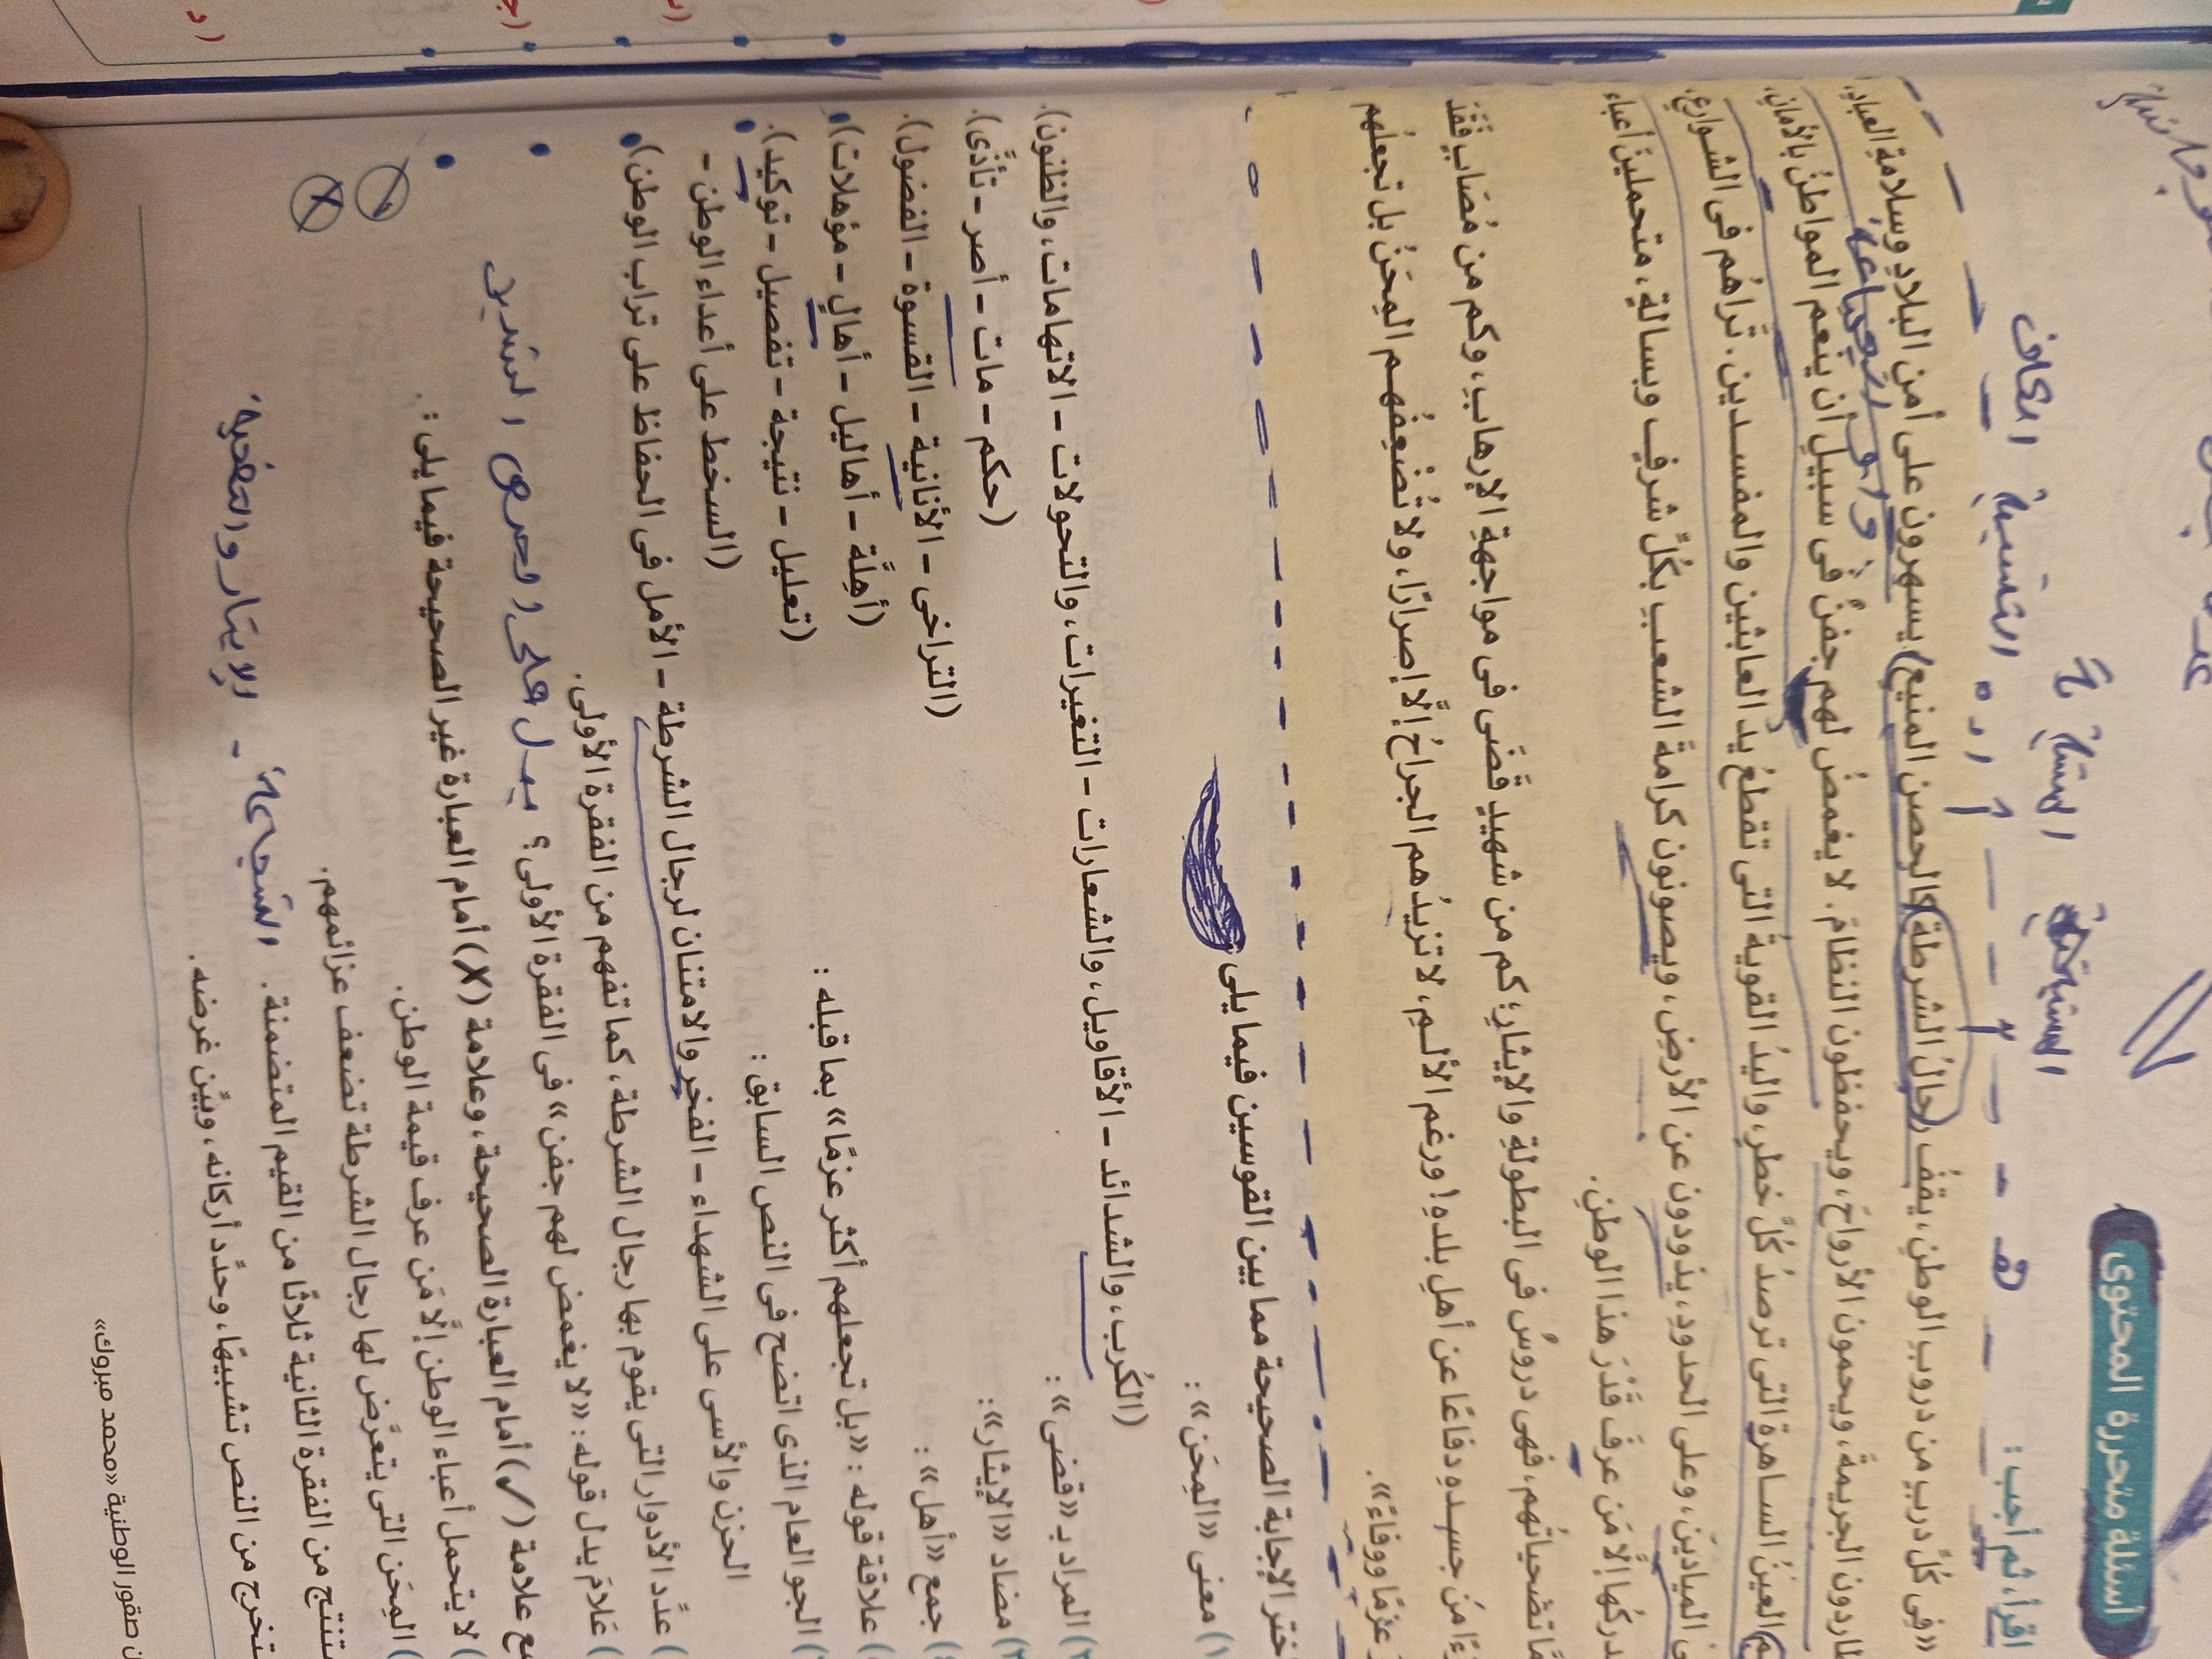 أسئلة متحررة المحتوى
اقرأ، ثم أجب :
أداة التشبيه الكاف
«فى كُلِّ دربٍ من دروبِ الوطنِ، يقفُ رجالُ الشرطة كالحصن المنيع) يسهرون على أمن البلادِ وسلامةِ العبادِ،
طاردون الجريمةَ، ويحمون الأرواحَ، ويحفظون النظامَ. لا يغمضُ لهم جفنٌ فى سبيلِ أن ينعم المواطنُ بالأمانِ،
العينُ الساهرة التى ترصدُ كُلَّ خطرٍ، واليدُ القويةُ التى تقطعُ يدَ العابثين والمفسدين. تراهُم فى الشوارعِ،
الميادين، وعلى الحدودِ، يذودون عن الأرضِ، ويصونون كرامةَ الشعبِ بكُلِّ شرفٍ وبسالةٍ، متحملين أعباء
دركُها إلَّا مَن عرفَ قَدْرَ هذا الوطنِ.
تضحياتُهم، فهى دروسٌ فى البطولةِ والإيثارِ؛ كم من شهيدٍ قضَى فى مواجهةِ الإرهابِ، وكم من مُصَابٍ فَقَدَ
ءًا مِن جسدِهِ دفاعًا عن أهلِ بلدهِ! ورغم الألمِ، لا تزيدُهم الجراحُ إلَّا إصرارًا، ولا تُضْعِفُهم المِحَنُ بل تجعلُهم
عزمًا ووفاءً».
ختر الإجابة الصحيحة مما بين القوسين فيما يلى
١) معنى «المِحَن» :
(الكُرب، والشدائد – الأقاويل، والشعارات – التغيرات، والتحولات – الاتهامات، والظنون).
٢) المراد بـ «قضى» :
(حكم – مات – أصر – تأذَّى).
٣) مضاد «الإيثار»:
(التراخى – الأنانية – القسوة – الفضول).
٤) جمع «أهل» :
(أهِلَّة – أهاليل – أهالٍ – مؤهلات).
) علاقة قوله : «بل تجعلهم أكثر عزمًا» بما قبله :
(تعليل – نتيجة – تفصيل – توكيد).
) الجو العام الذى اتضح فى النص السابق :
(السخط على أعداء الوطن –
الحزن والأسى على الشهداء – الفخر والامتنان لرجال الشرطة – الأمل فى الحفاظ على تراب الوطن).
) عدِّد الأدوار التى يقوم بها رجال الشرطة، كما تفهم من الفقرة الأولى.
) عَلامَ يدل قوله : «لا يغمض لهم جفن» فى الفقرة الأولى؟ يدل على الحرص الشديد
ع علامة (✓) أمام العبارة الصحيحة، وعلامة (✗) أمام العبارة غير الصحيحة فيما يلى :
) لا يتحمل أعباء الوطن إلَّا مَن عرف قيمة الوطن.
) المِحَن التى يتعرَّض لها رجال الشرطة تضعف عزائمهم.
تنتج من الفقرة الثانية ثلاثًا من القيم المتضمنة. الشجاعة - الإيثار والتضحية
تخرج من النص تشبيهًا، وحدِّد أركانه، وبيِّن غرضه.
ن صقور الوطنية «محمد مبروك»